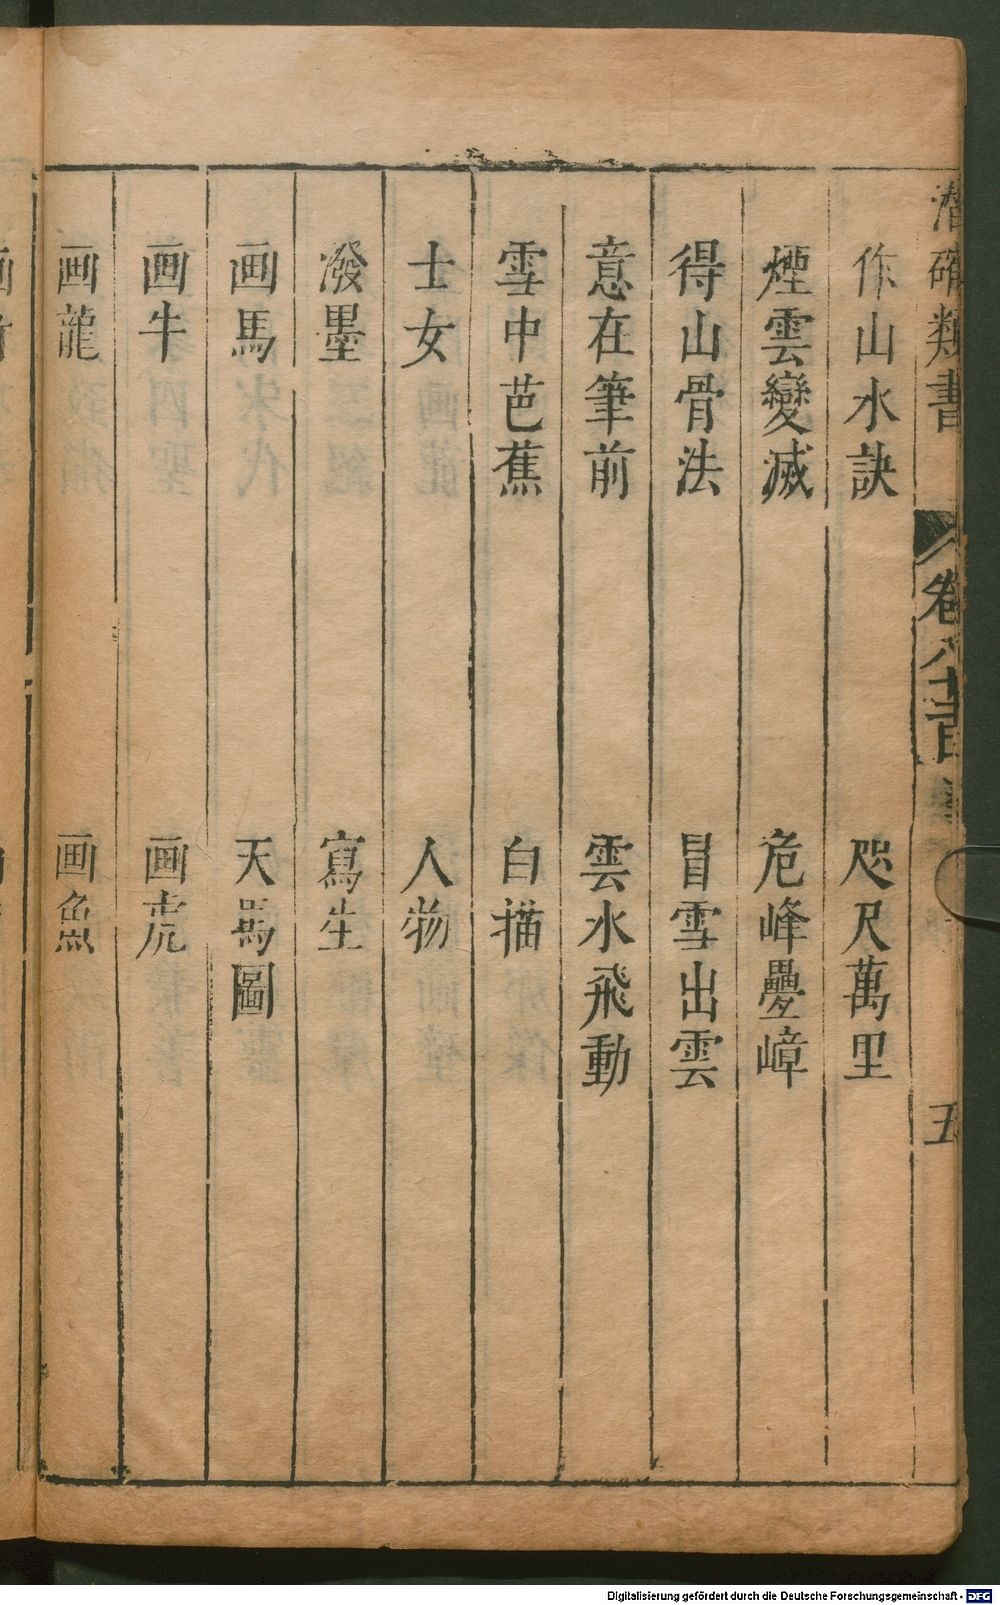 潛確類書 卷八十二目 五
作山水訣 咫尺萬里
煙雲變滅 危峰疊嶂
得山骨法 冒雪出雲
意在筆前 雲水飛動
雪中芭蕉 白描
士女 人物
潑墨 寫生
画馬 天馬圖
画牛 画虎
画龍 画魚
Digitalisierung gefördert durch die Deutsche Forschungsgemeinschaft - DFG